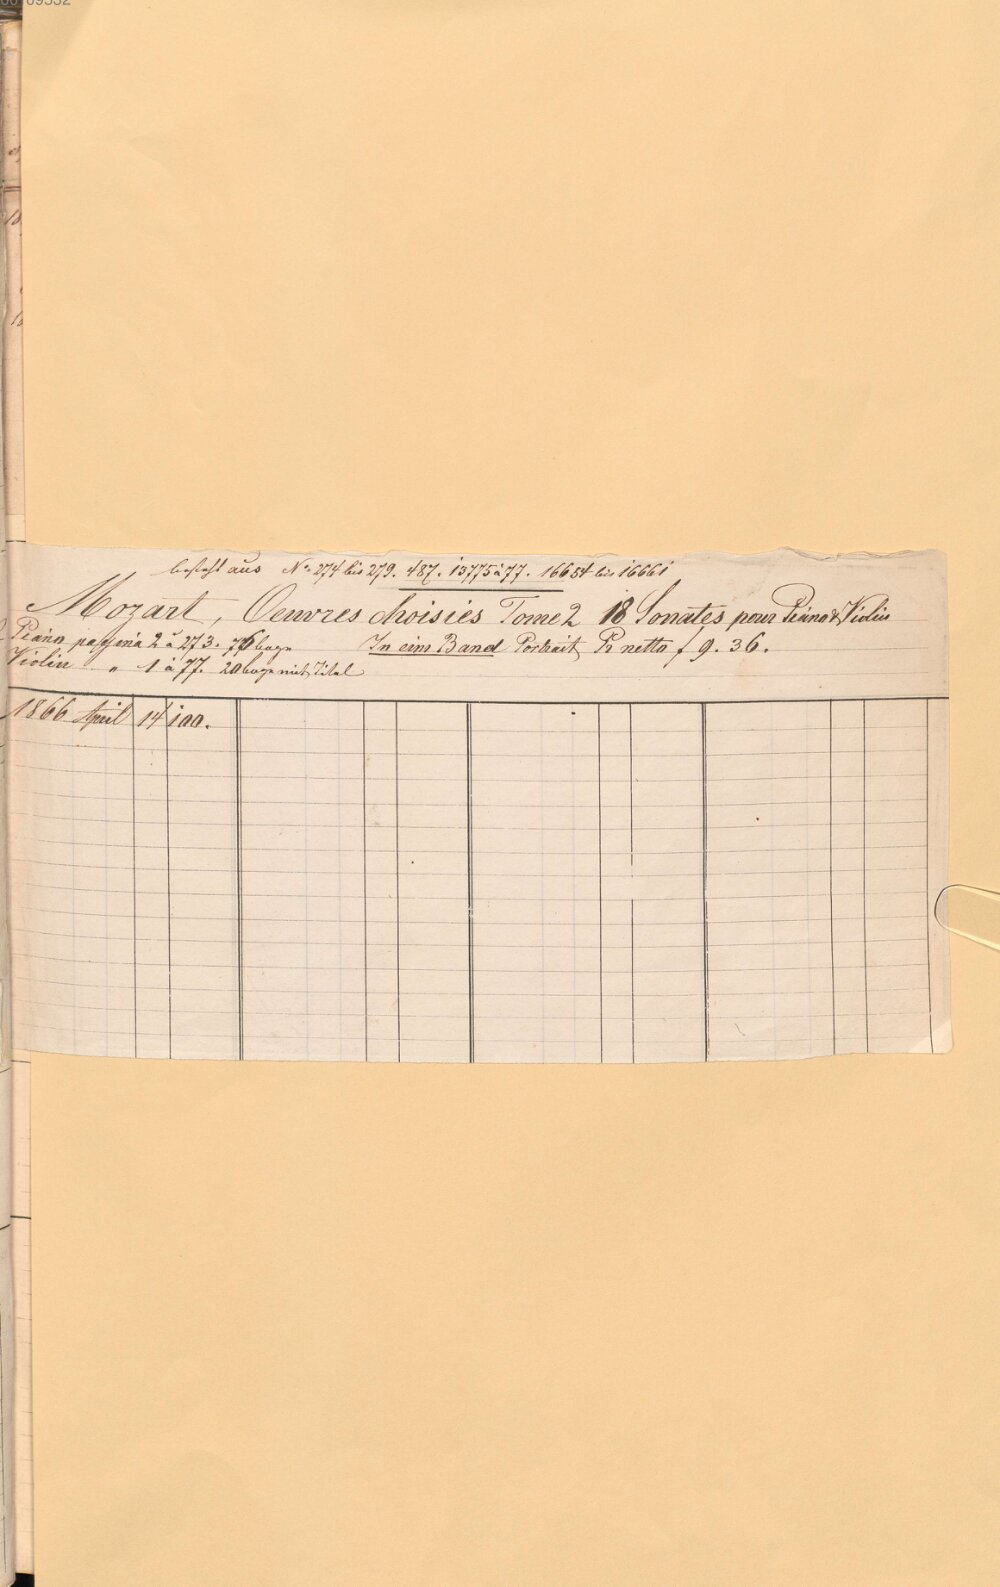 besteht aus No 274 bis 279. 487. 13775 à 77. 16654 bis 16661
Mozart, Oeuvres choisies Tome 2 18 Sonates pour Piano & Violin
Piano pagina 2 à 273. 76 bogen In eim Band Portrait Pr netto f 9. 36.
Violin " 1 à 77. 20 bogen mit Titel
1866 April 14 100.